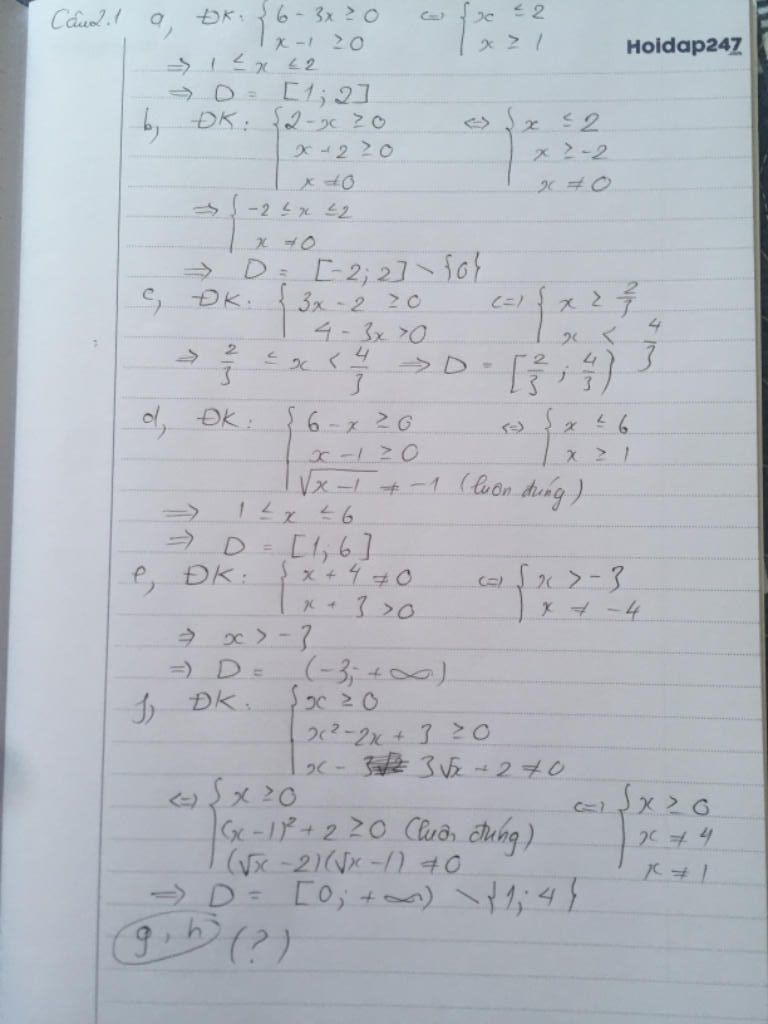 Câu2.1 a, ĐK: { 6 - 3x ≥ 0 <=> { x ≤ 2
x - 1 ≥ 0 x ≥ 1
Hoidap247
=> 1 ≤ x ≤ 2
=> D = [1; 2]
b, ĐK: { 2 - x ≥ 0 <=> { x ≤ 2
x + 2 ≥ 0 x ≥ -2
x ≠ 0 x ≠ 0
=> { -2 ≤ x ≤ 2
x ≠ 0
=> D = [-2; 2] \ {0}
c, ĐK: { 3x - 2 ≥ 0 <=> { x ≥ 2/3
4 - 3x > 0 x < 4/3
=> 2/3 ≤ x < 4/3 => D = [2/3; 4/3)
d, ĐK: { 6 - x ≥ 0 <=> { x ≤ 6
x - 1 ≥ 0 x ≥ 1
√(x - 1) ≠ -1 (luôn đúng)
=> 1 ≤ x ≤ 6
=> D = [1; 6]
e, ĐK: { x + 4 ≠ 0 <=> { x > -3
x + 3 > 0 x ≠ -4
=> x > -3
=> D = (-3; +∞)
f, ĐK: { x ≥ 0
x² - 2x + 3 ≥ 0
x - 3√x + 2 ≠ 0
<=> { x ≥ 0 <=> { x ≥ 0
(x - 1)² + 2 ≥ 0 (luôn đúng) x ≠ 4
(√x - 2)(√x - 1) ≠ 0 x ≠ 1
=> D = [0; +∞) \ {1; 4}
g, h (?)